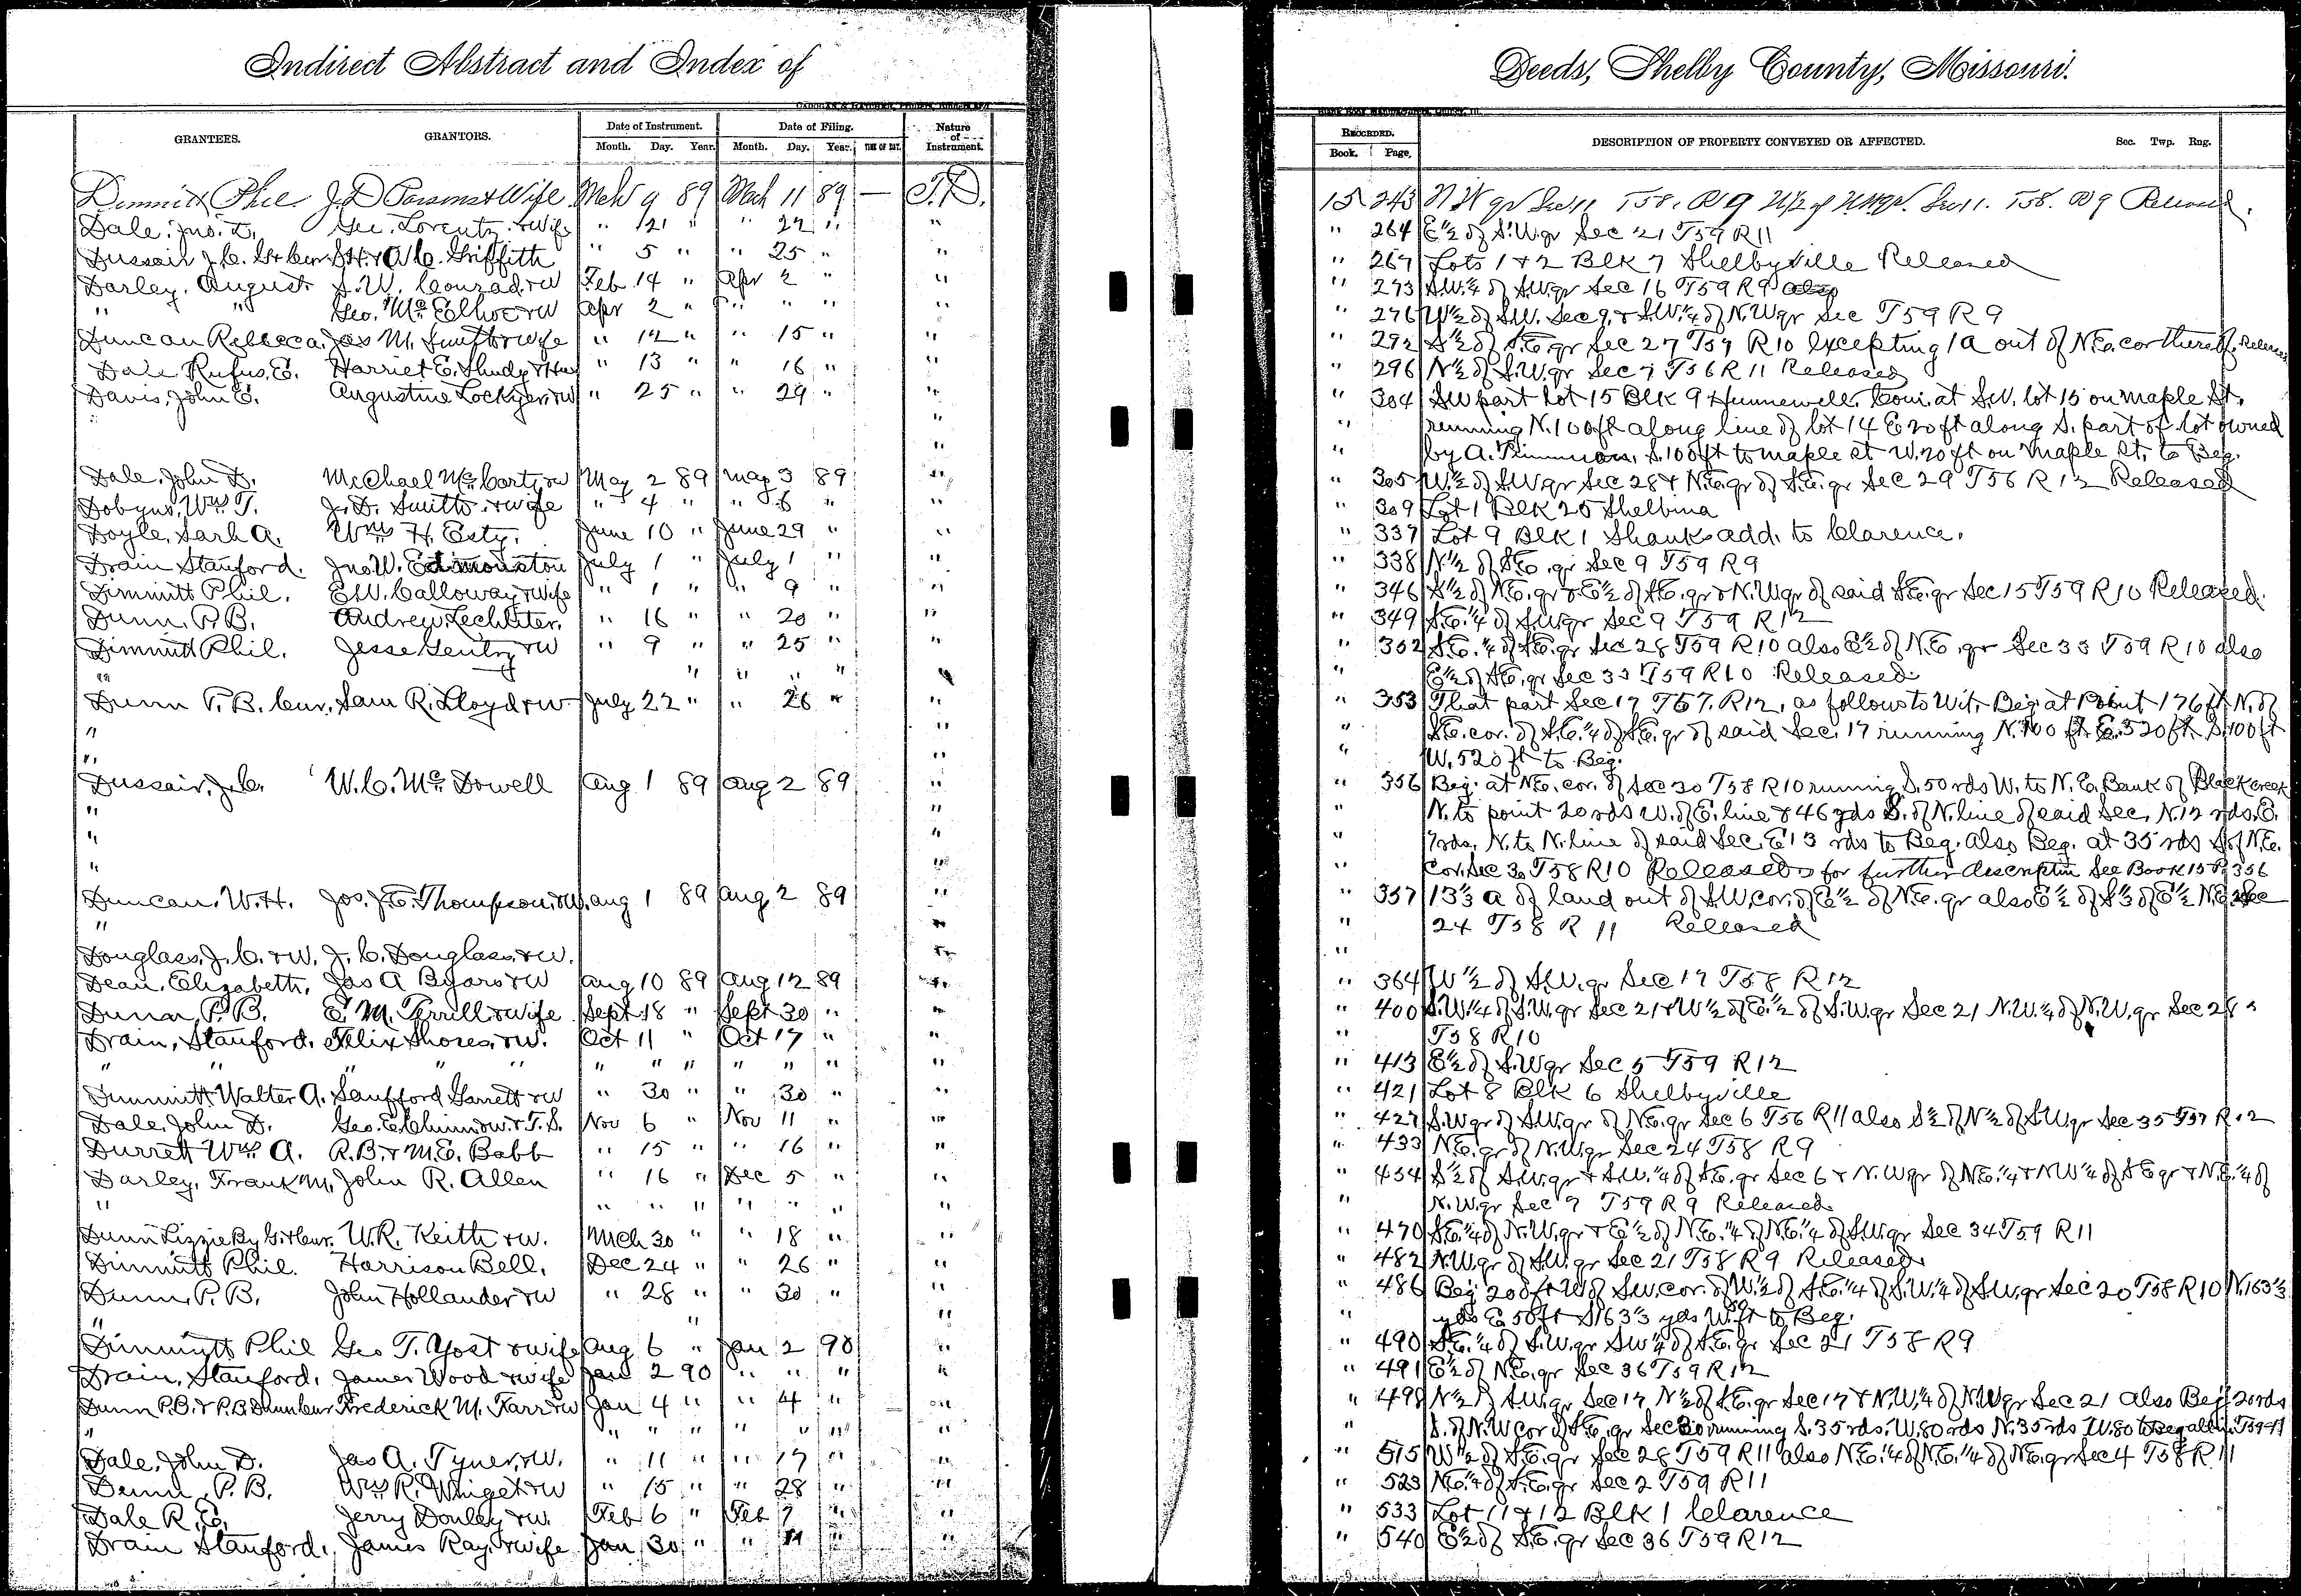 Indirect Abstract and Index of
Deeds, Shelby County, Missouri.
GRANTEES. GRANTORS. Date of Instrument. Date of Filing. Nature of Instrument.
Month. Day. Year. Month. Day. Year. TIME OF DAY.
RECORDED. DESCRIPTION OF PROPERTY CONVEYED OR AFFECTED. Sec. Twp. Rng.
Book. Page,
Dimmitt Phil J. D. Parsons & Wife Mch 9 89 Mch 11 89 — T.D. 15 243 N.W qr Sec 11 T58. R9 Sec 11. T58. R9 Released.
Dale, Jno. D. Geo. Lorentz & wife " 21 " " 22 " " " 264 E½ of S.W. qr Sec 21 T59 R11
Dussair J. C. Griffith " 5 " " 25 " " " 267 Lots 1 & 2 Blk 7 Shelbyville Released
Darley, August S. W. Conrad & w Feb 14 " Apr 2 " " " 273 S.W.¼ of S.W. qr Sec 16 T59 R9
" " Geo. McElhoe & w Apr 2 " " " " " " 276 W½ of S.W. Sec 9, & S.W.¼ of N.W qr Sec T59 R9
Duncan Rebecca, Jas M. Smith & wife " 12 " " 15 " " " 292 S½ of S.E. qr Sec 27 T59 R10 excepting 1a out of N.E. cor thereof, Released
Dale Rufus, E. Harriet E. Shudy & Hus " 13 " " 16 " " " 296 N½ of S.W. qr Sec 7 T56 R11 Released
Davis, John E. Augustine Lockyer & w " 25 " " 29 " " " 304 SW part lot 15 Blk 9 Hunnewell. Com. at S.W. lot 15 on Maple St.
" " " running N. 100 ft along line of lot 14 E 20 ft along S. part of lot owned
" " by A. S. 100 ft to maple st W. 20 ft on Maple St. to Beg.
Dale, John D. McChael McCarty & w May 2 89 May 3 89 " " 305 W½ of S.W qr Sec 28 & N.E. qr of S.E. qr Sec 29 T56 R12 Released
Dobyns, Wm. T. J. D. Smith & wife " 4 " " 6 " " " 309 Lot 1 Blk 25 Shelbina
Doyle, Sarh A. Wm H. Esty. June 10 " June 29 " " " 337 Lot 9 Blk 1 Shanks add. to Clarence.
Drain Stanford. Jno. W. Edmonston July 1 " July 1 " " " 338 N½ of S.E. qr Sec 9 T59 R9
Dimmitt Phil. E.W. Calloway & wife " 1 " " 9 " " " 346 S½ of N.E. qr & E½ of S.E. qr & N.W qr of said S.E. qr Sec 15 T59 R10 Released.
Dunn P. B. Andrew Lechliter. " 16 " " 20 " " " 349 S.E.¼ of S.W qr Sec 9 T59 R12
Dimmitt Phil. Jesse Gentry & w " 9 " " 25 " " " 352 S.E.¼ of S.E. qr Sec 28 T59 R10 also E½ of N.E. qr Sec 33 T59 R10 also
" " " " " " " E½ of S.E. qr Sec 33 T59 R10 Released
Dunn P. B. Cur. Sam R. Lloyd & w July 22 " " 26 " " " 353 That part Sec 17 T57. R12, as follows to Wit, Beg. at Point 176 ft N. of
" " " S.E. cor. of S.E.¼ of S.E. qr of said Sec. 17 running N. 100 ft E. 520 ft S. 100 ft
" " " W. 520 ft to Beg.
Dussair, J. C. W. C. McDowell Aug 1 89 Aug 2 89 " " 356 Beg. at N.E. cor. of Sec 30 T58 R10 running S. 50 rds W. to N. E. Bank of Black creek
" " " N. to point 20 rds W. of E. line & 46 yds S. of N. line of said Sec, N. 12 rds. E.
" " " 7 rds, N. to N. line of said Sec. E 13 rds to Beg. also Beg. at 35 rds S. of N.E.
" " " Cor. Sec 30 T58 R10 Released for further descriptin See Book 15 P. 356
Duncan. W. H. Jos. J. E. Thompson & w. Aug 1 89 Aug 2 89 " " 357 13⅓ a of land out of S.W. cor. of E½ of N.E. qr also E½ of S⅓ of E½ N.E. Sec
" " " 24 T58 R 11 Released
Douglass, J. C. & W. J. C. Douglass, & w. " "
Dean, Elizabeth, Jas A Byars & w Aug 10 89 Aug 12 89 " " 364 W½ of S.W. qr Sec 17 T58 R12
Dunn, P. B. E. M. Terrill & wife Sept 18 " Sept 30 " " " 400 S.W.¼ of S.W. qr Sec 21 & W½ of E.½ of S.W. qr Sec 21 N.W.¼ of N.W. qr Sec 28
Drain, Stanford, Felix Shores, & w. Oct 11 " Oct 17 " " " T58 R10
" " " " " " " " " " " " 413 E½ of S.W qr Sec 5 T59 R12
Dimmitt Walter A. Sanfford Garrett & w " 30 " " 30 " " " 421 Lot 8 Blk 6 Shelbyville
Dale, John D. Geo. E. Chinn & w. & T. S. Nov 6 " Nov 11 " " " 427 S.W qr of S.W. qr of N.E. qr Sec 6 T56 R11 also S½ of N½ of S.W. qr Sec 35 T57 R12
Durrett Wm A. R. B. & M. E. Babb " 15 " " 16 " " " 433 N.E. qr of N.W. qr Sec 24 T58 R9
Darley, Frank M, John R. Allen " 16 " Dec 5 " " " 454 S½ of S.W. qr & S.W.¼ of S.E. qr Sec 6 & N.W qr of N.E.¼ & NW¼ of S E qr & N.E.¼ of
" " " " " " " " " N.W. qr Sec 7 T59 R9 Released
Dunn Lizzie By G. & Cur. W. R. Keith & w. Mch 30 " " 18 " " " 470 S.E.¼ of N.W. qr & E½ of N.E.¼ of N.E.¼ of S.W. qr Sec 34 T59 R11
Dimmitt Phil. Harrison Bell, Dec 24 " " 26 " " " 482 N.W. qr of S.W. qr Sec 21 T58 R9 Released
Dunn, P. B. John Hollander & w " 28 " " 30 " " " 486 Beg. 200 ft W of S.W. cor. of W.½ of S.E.¼ of S.W.¼ of S.W. qr Sec 20 T58 R10 N. 163⅓
" " " yds E. 50 ft S 163⅓ yds W. ft to Beg.
Dimmitt Phil Geo T. Yost & wife Aug 6 " Jan 2 90 " " 490 S.E.¼ of S.W. qr SW¼ of S.E. qr Sec 21 T58 R9
Drain, Stanford, James Wood & wife Jan 2 90 " " " " " 491 E½ of N.E. qr Sec 36 T59 R12
Dunn P.B. & P.B. Dunn Cur Frederick M. Farr & w Jan 4 " " 4 " " " 498 N½ of S.W. qr Sec 17, N½ of S.E. qr Sec 17 & N.W.¼ of N.W qr Sec 21 Also Beg. 20 rds
" " " " " " " " " S. of N.W cor of S.E. qr Sec 20 running S. 35 rds. W. 80 rds N. 35 rds W. 80 to Beg all in T59
Dale, John D. Jas A. Tyner, & w. " 11 " " 17 " " " 515 W½ of S.E. qr Sec 28 T59 R11 also N.E.¼ of N.E.¼ of N.E. qr Sec 4 T58 R11
Dunn, P. B. Wm R. Whiget & w " 15 " " 28 " " " 523 N.E.¼ of S.E. qr Sec 2 T59 R11
Dale R. E. Jerry Donley & w. Feb 6 " Feb 7 " " " 533 Lot 11 & 12 Blk 1 Clarence
Drain Stanford, James Ray & wife Jan 30 " " 11 " " " 540 E½ of S.E. qr Sec 36 T59 R12